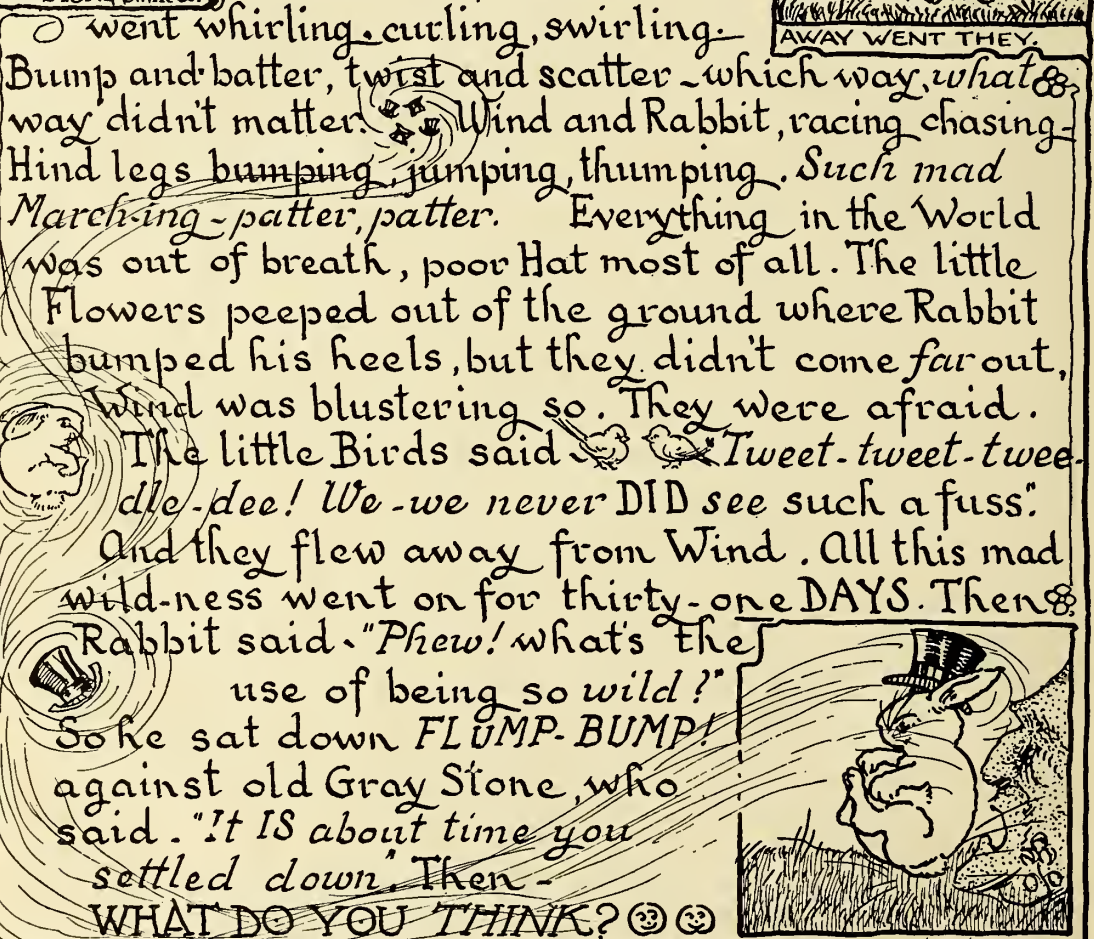 went whirling, curling, swirling.
AWAY WENT THEY.
Bump and batter, twist and scatter - which way, what
way didn't matter. Wind and Rabbit, racing, chasing -
Hind legs bumping, jumping, thumping. Such mad
March-ing - patter, patter. Everything in the World
was out of breath, poor Hat most of all. The little
Flowers peeped out of the ground where Rabbit
bumped his heels, but they didn't come far out,
Wind was blustering so. They were afraid.
The little Birds said - Tweet - tweet - twee-
dle - dee! We - we never DID see such a fuss."
And they flew away from Wind. All this mad
wild-ness went on for thirty-one DAYS. Then
Rabbit said - "Phew! what's the
use of being so wild?"
So he sat down FLUMP-BUMP!
against old Gray Stone, who
said. "It IS about time you
settled down." Then -
WHAT DO YOU THINK?